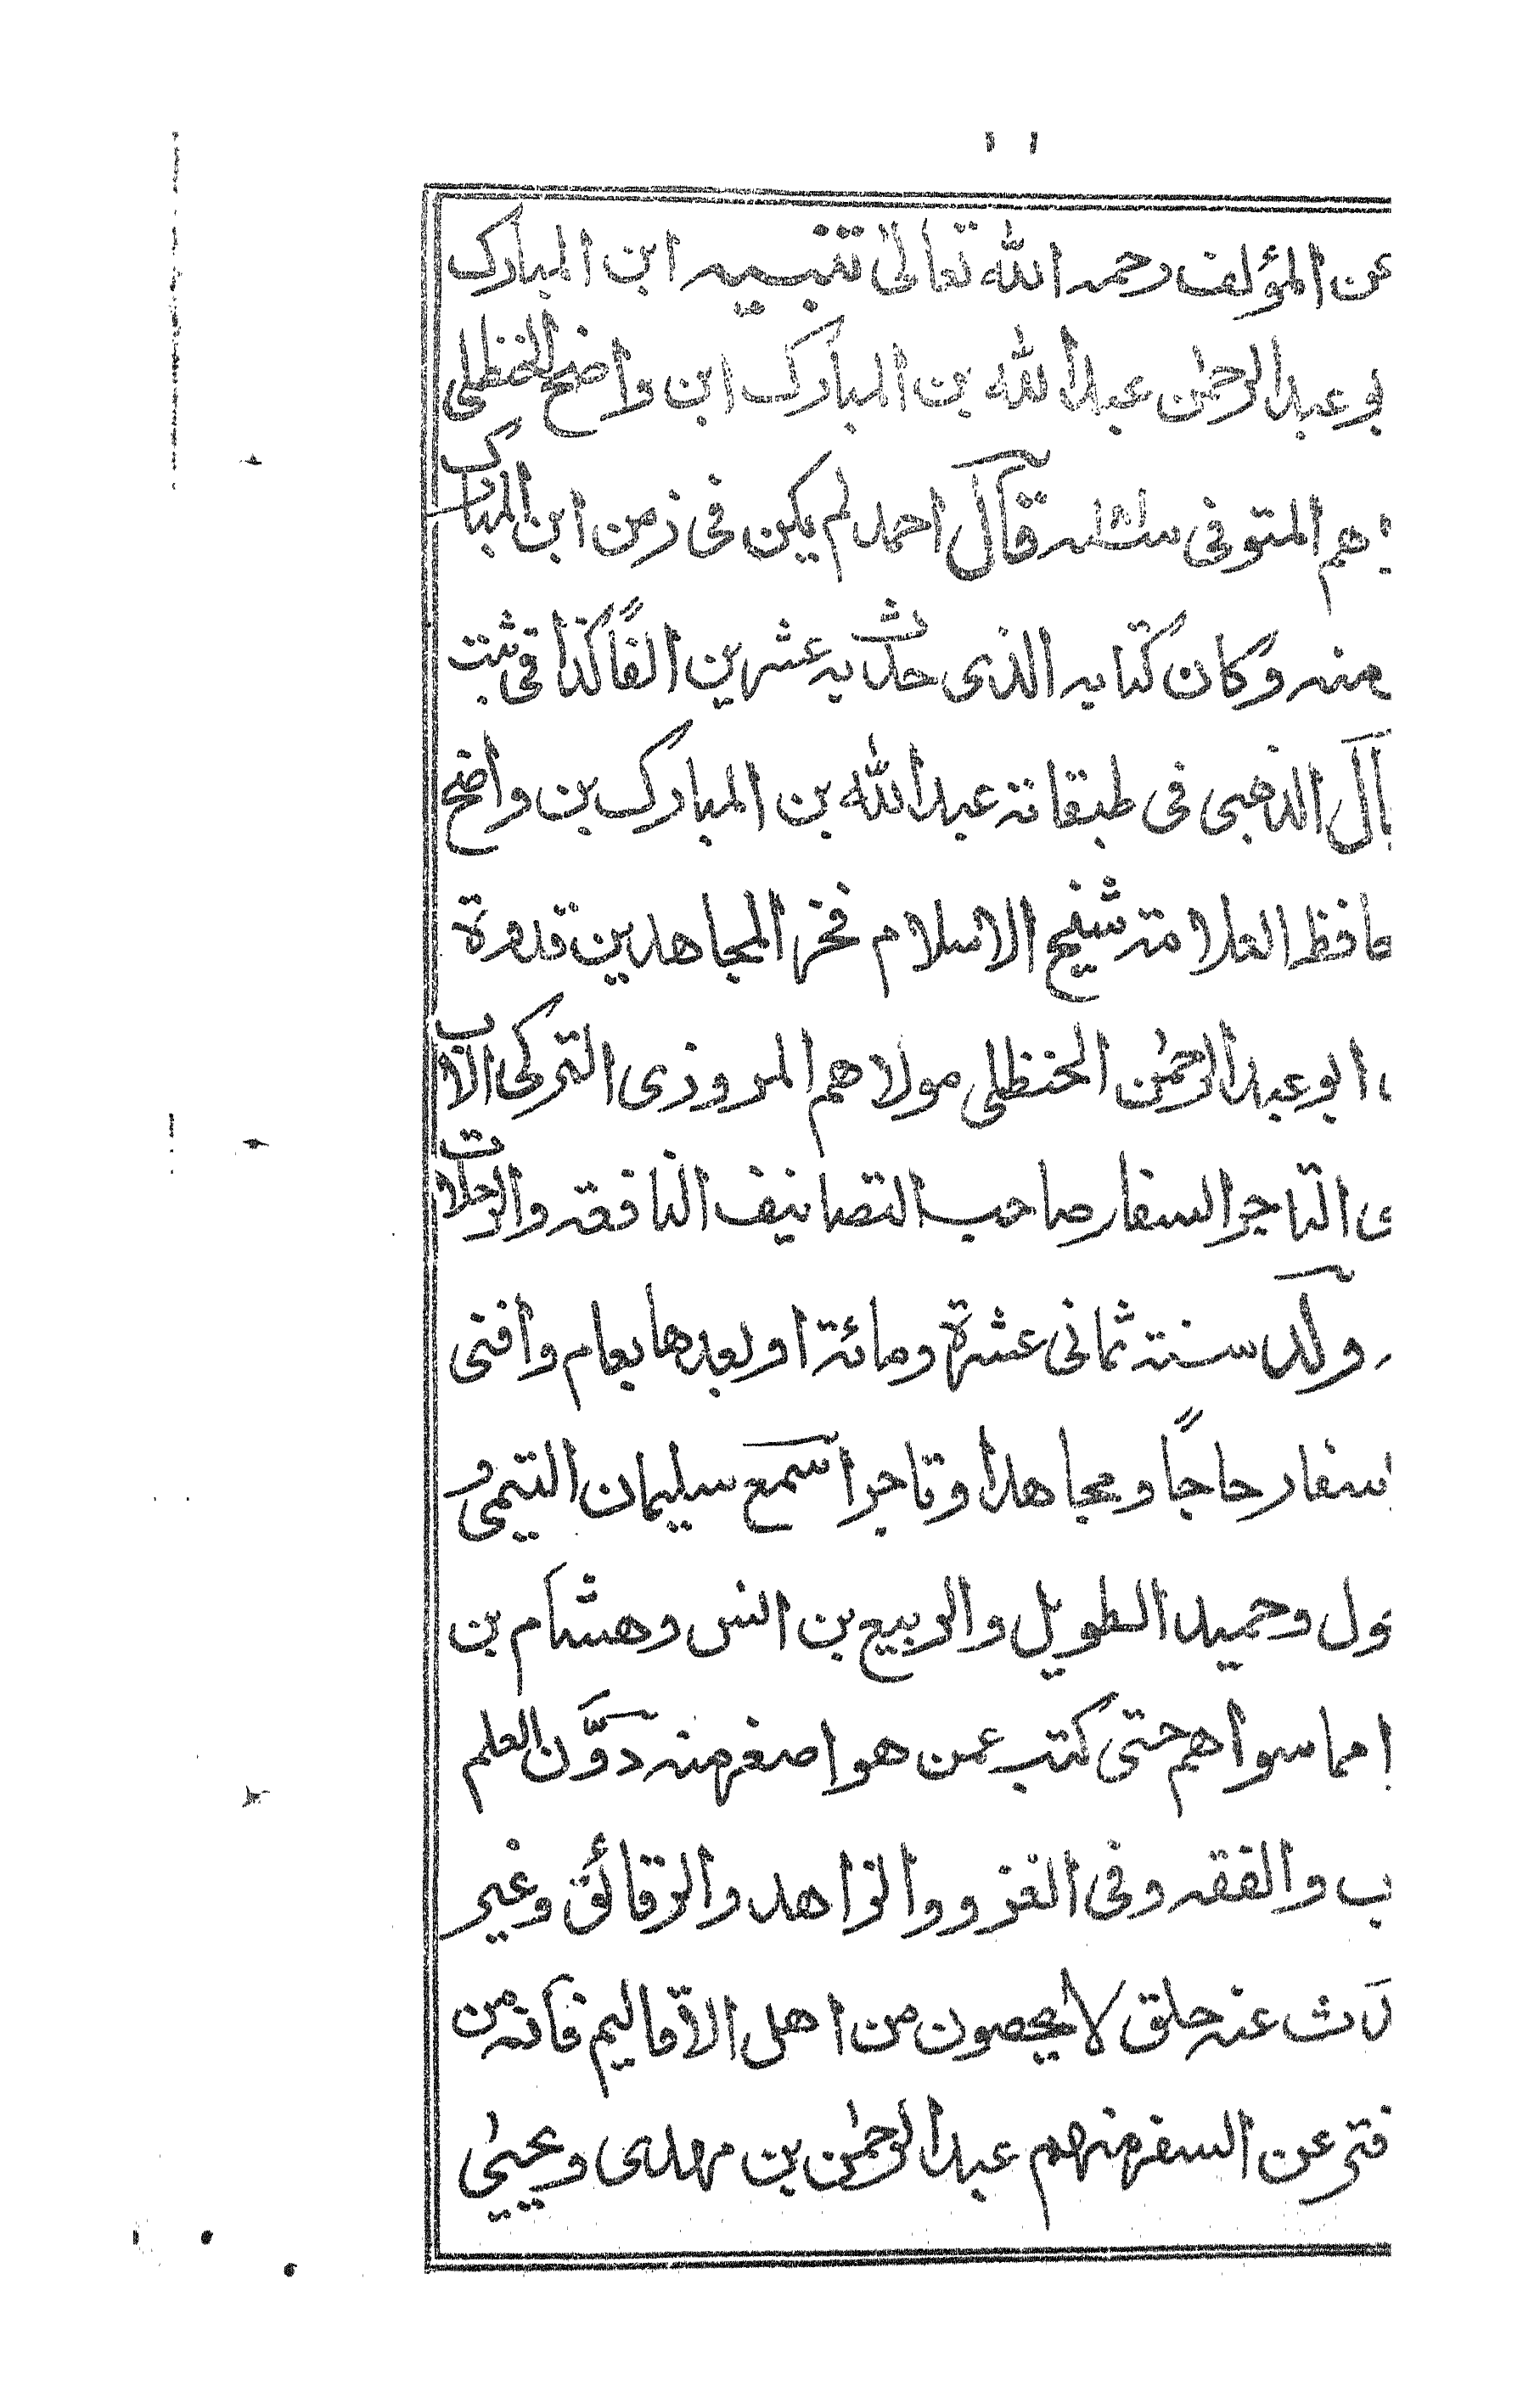 ١١
عن المؤلف رحمه الله تعالىٰ تنبيه ابن المبارك
بو عبد الرحمٰن عبد الله بن المبارك ابن واضح الحنظلي
هم المتوفى قال احمد لم يكن في زمن ابن المبارك
منه وكان كتابه الذى حدث به عشرين الفًا كذا في ثبت
ال الذهبي في طبقاته عبد الله بن المبارك بن واضح
حافظ العلامة شيخ الاسلام فخر المجاهدين قدوة
ابو عبد الرحمٰن الحنظلي مولاهم المروذى التركي الاب
ى التاجر السفار صاحب التصانيف النافعة والرحلات
ولد سنة ثمانى عشرة ومائة او بعدها بعام وافنى
اسفار حاجًا ومجاهدا وتاجرا سمع سليمان التيمي و
ول وحميد الطويل والربيع بن انس وهشام بن
مما سواهم حتى كتب عمن هو اصغر منه دوَّن العلم
ب والفقه وفى الغزو والزاهد والرقائق وغير
دث عنه خلق لا يحصون من اهل الاقاليم فانه من
فتى عن السفر منهم عبد الرحمٰن بن مهدى ويحيىٰ